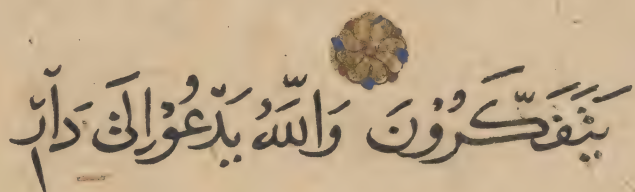 يَتَفَكَّرُونَ وَاللَّهُ يَدْعُوْا إِلَىٰ دَارِ